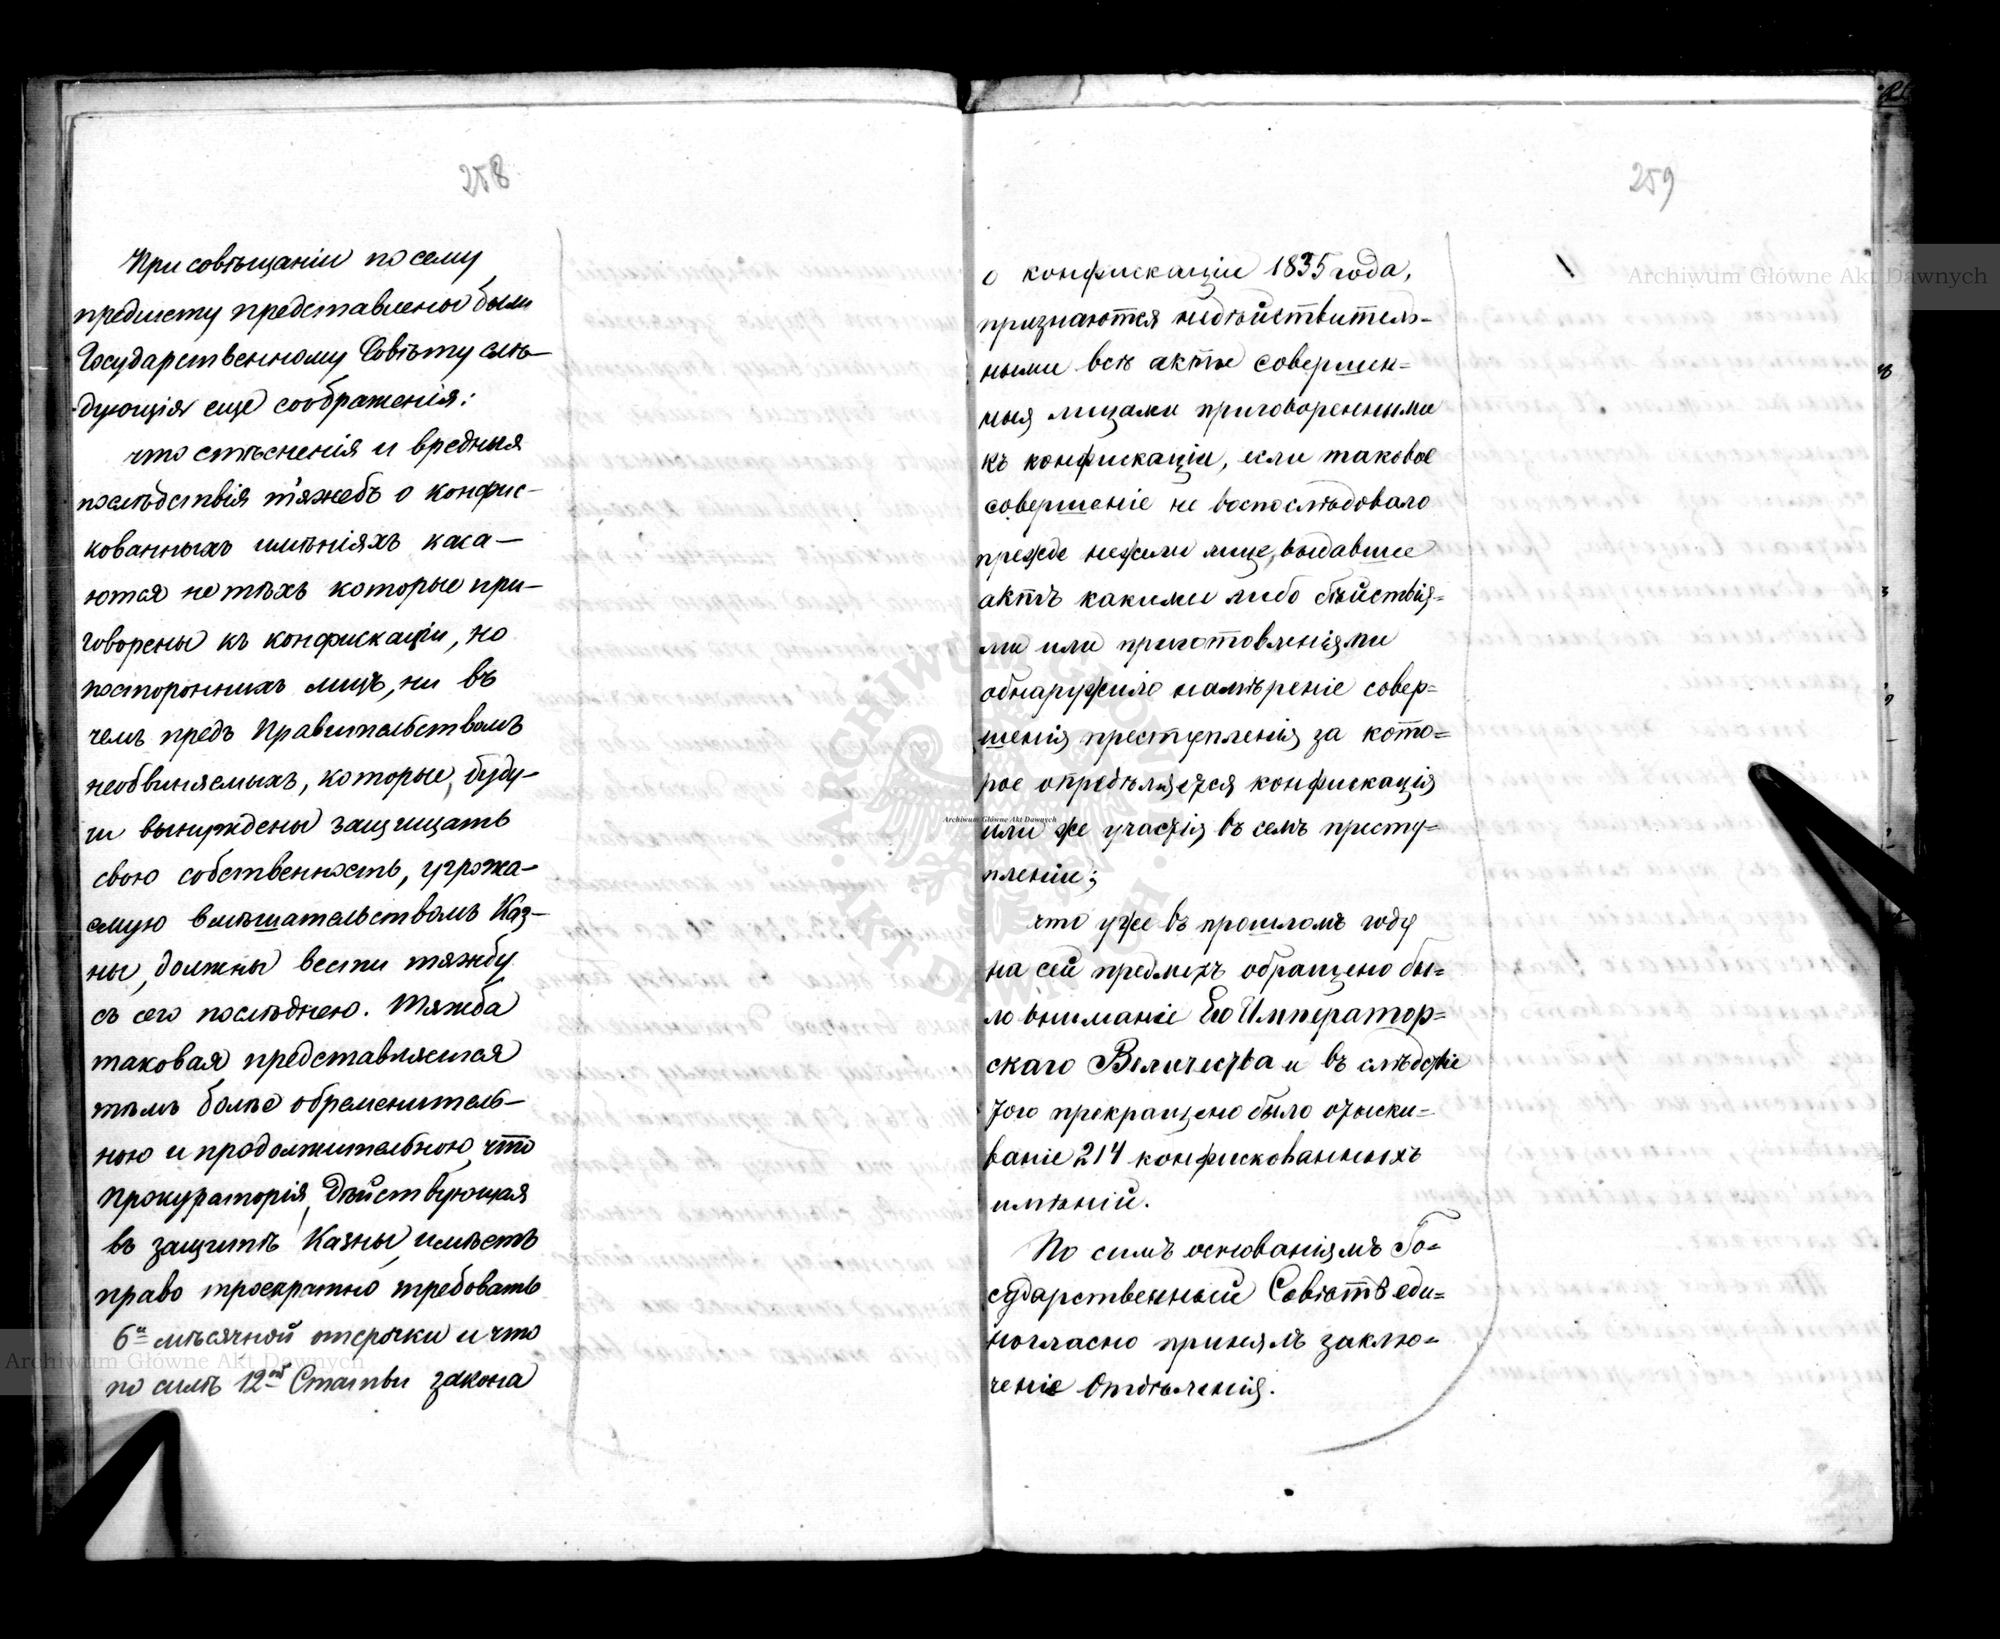 258
При совѣщаніи по сему
предмету представлены были
Государственному Совѣту слѣ-
дующія еще соображенія:
что стѣсненія и вредныя
послѣдствія тяжебъ о конфис-
кованныхъ имѣніяхъ каса-
ются не тѣхъ которые при-
говорены къ конфискаціи, но
постороннихъ лицъ, ни въ
чемъ предъ Правительствомъ
необвиняемыхъ, которые, буду-
чи вынуждены защищать
свою собственность, угрожа-
емую вмѣшательствомъ Каз-
ны, должны вести тяжбу
съ сею послѣднею. Тяжба
таковая представляется
тѣмъ болѣе обременитель-
ною и продолжительною, что
Прокураторія, дѣйствующая
въ защитѣ Казны, имѣетъ
право троекратно требовать
6и мѣсячной отсрочки и что
по силѣ 12ой Статьи закона
259
о конфискаціи 1835 года,
признаются недѣйствитель=
ными всѣ акты совершен=
ныя лицами приговоренными
къ конфискаціи, если таковое
совершеніе не воспослѣдовало
прежде нежели лице, выдавшее
актъ какими либо дѣйствія=
ми или приготовленіями
обнаружило намѣреніе совер=
шенія преступленія за кото=
рое опредѣляется конфискація
или же участія въ семъ престу=
пленіи;
что уже въ прошломъ году
на сей предметъ обращено бы=
ло вниманіе Его Император=
скаго Величества и въ слѣдствіе
того прекращено было отыски=
ваніе 214 конфискованныхъ
имѣній.
По симъ основаніямъ Го=
сударственный Совѣтъ еди=
ногласно принялъ заклю=
ченіе Отдѣленія.
Archiwum Główne Akt Dawnych
Archiwum Główne Akt Dawnych
Archiwum Główne Akt Dawnych
ARCHIWUM GŁÓWNE AKT DAWNYCH